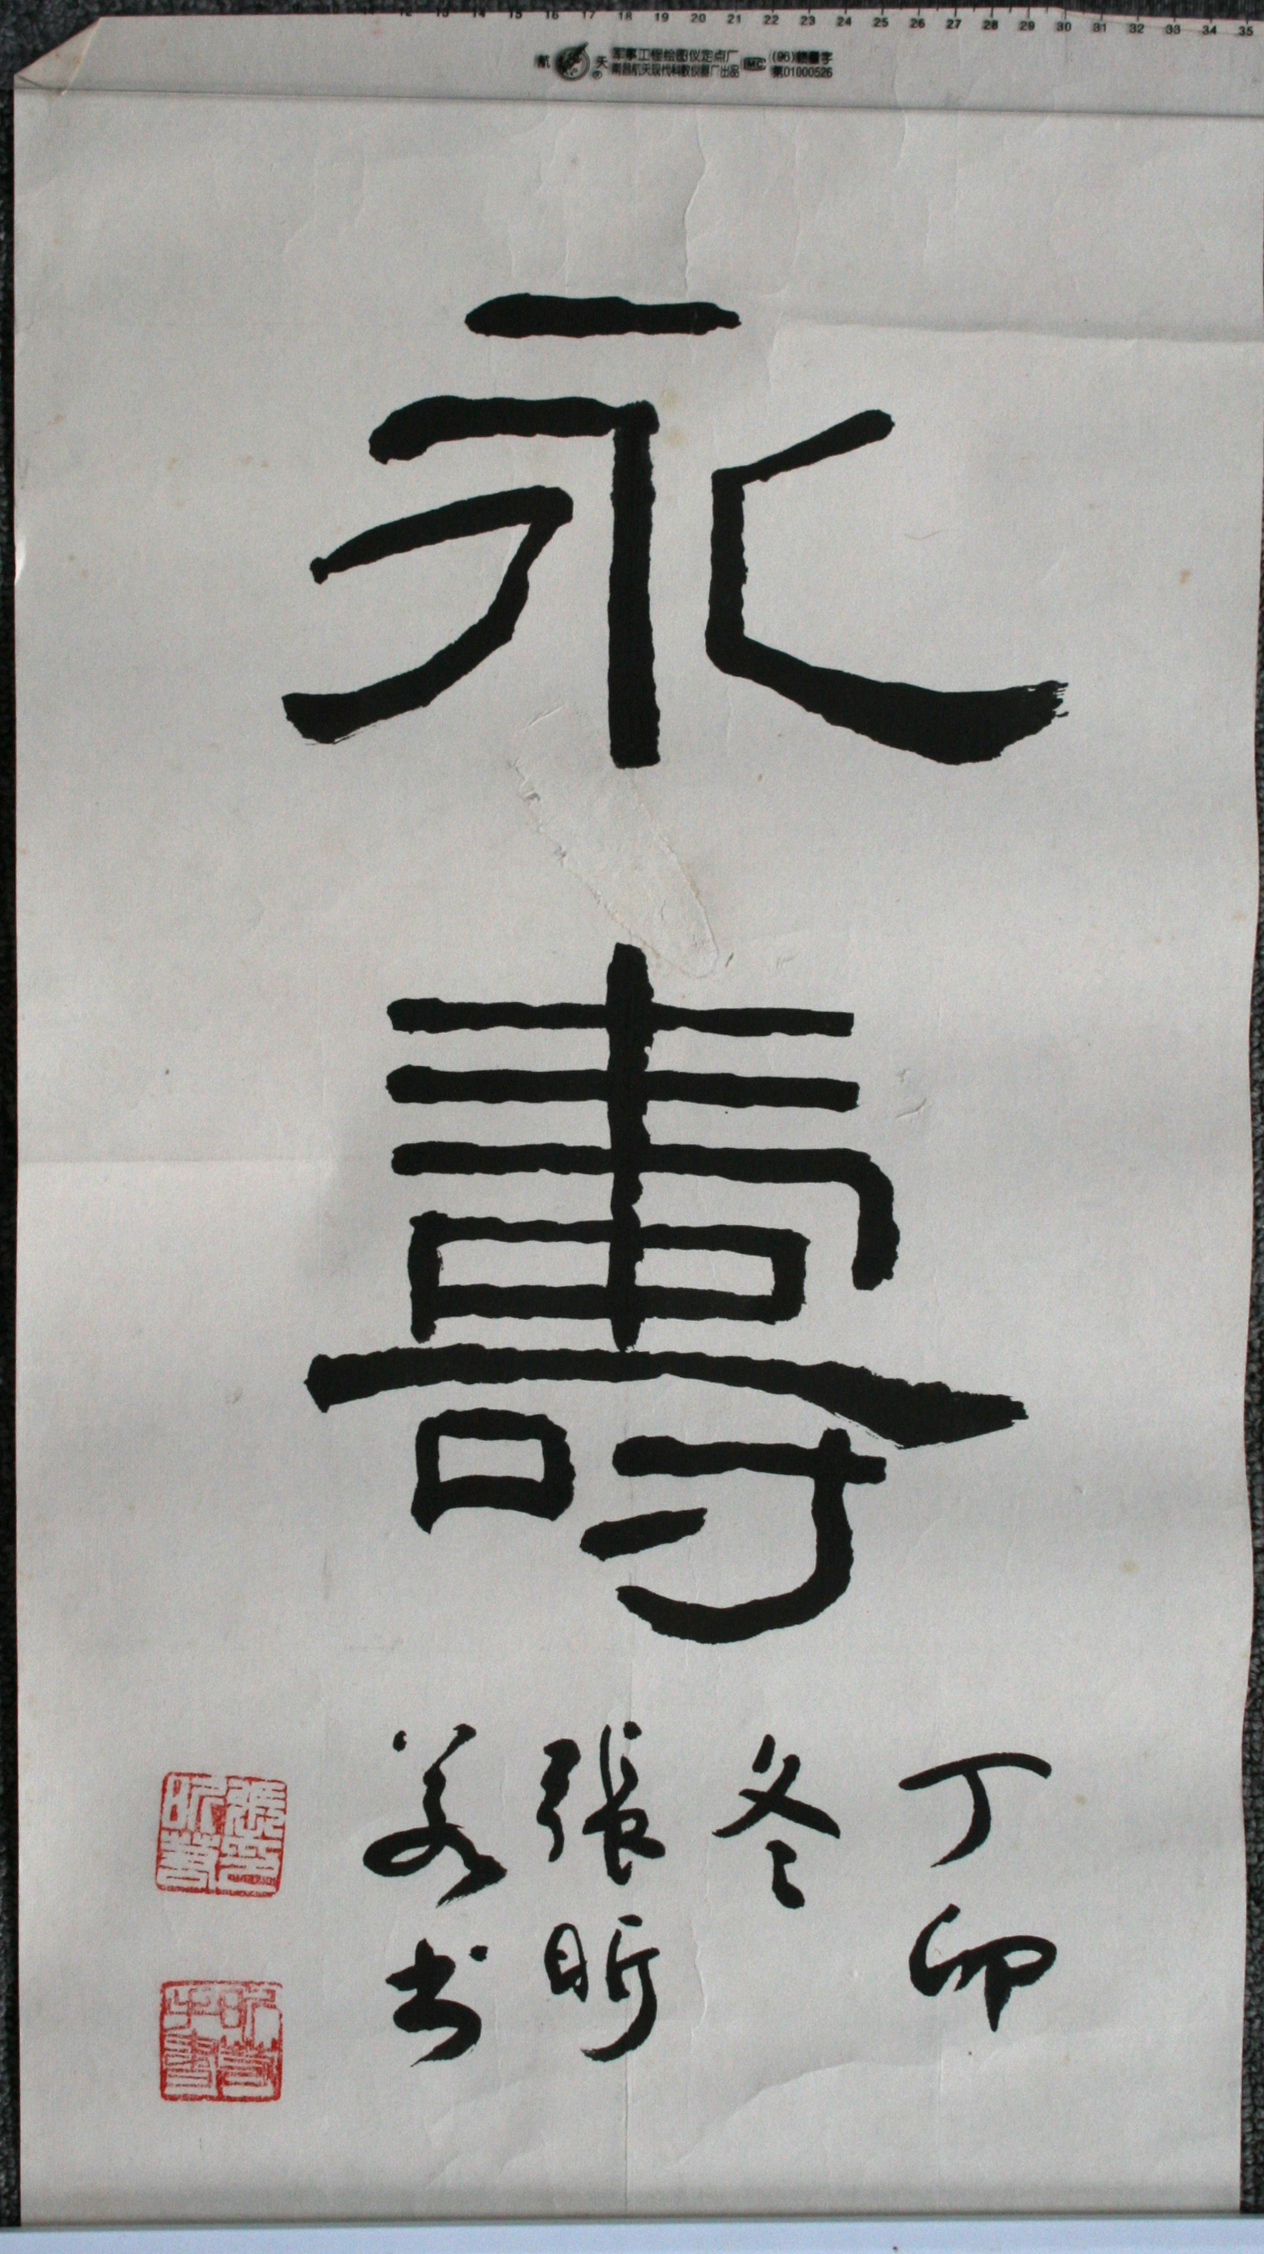 12 13 14 15 16 17 18 19 20 21 22 23 24 25 26 27 28 29 30 31 32 33 34 35
航天 军事工程绘图仪定点厂
南昌航天现代科教仪器厂出品
MC
第01000526
永
壽
丁卯
冬
張昕
若书
張昕